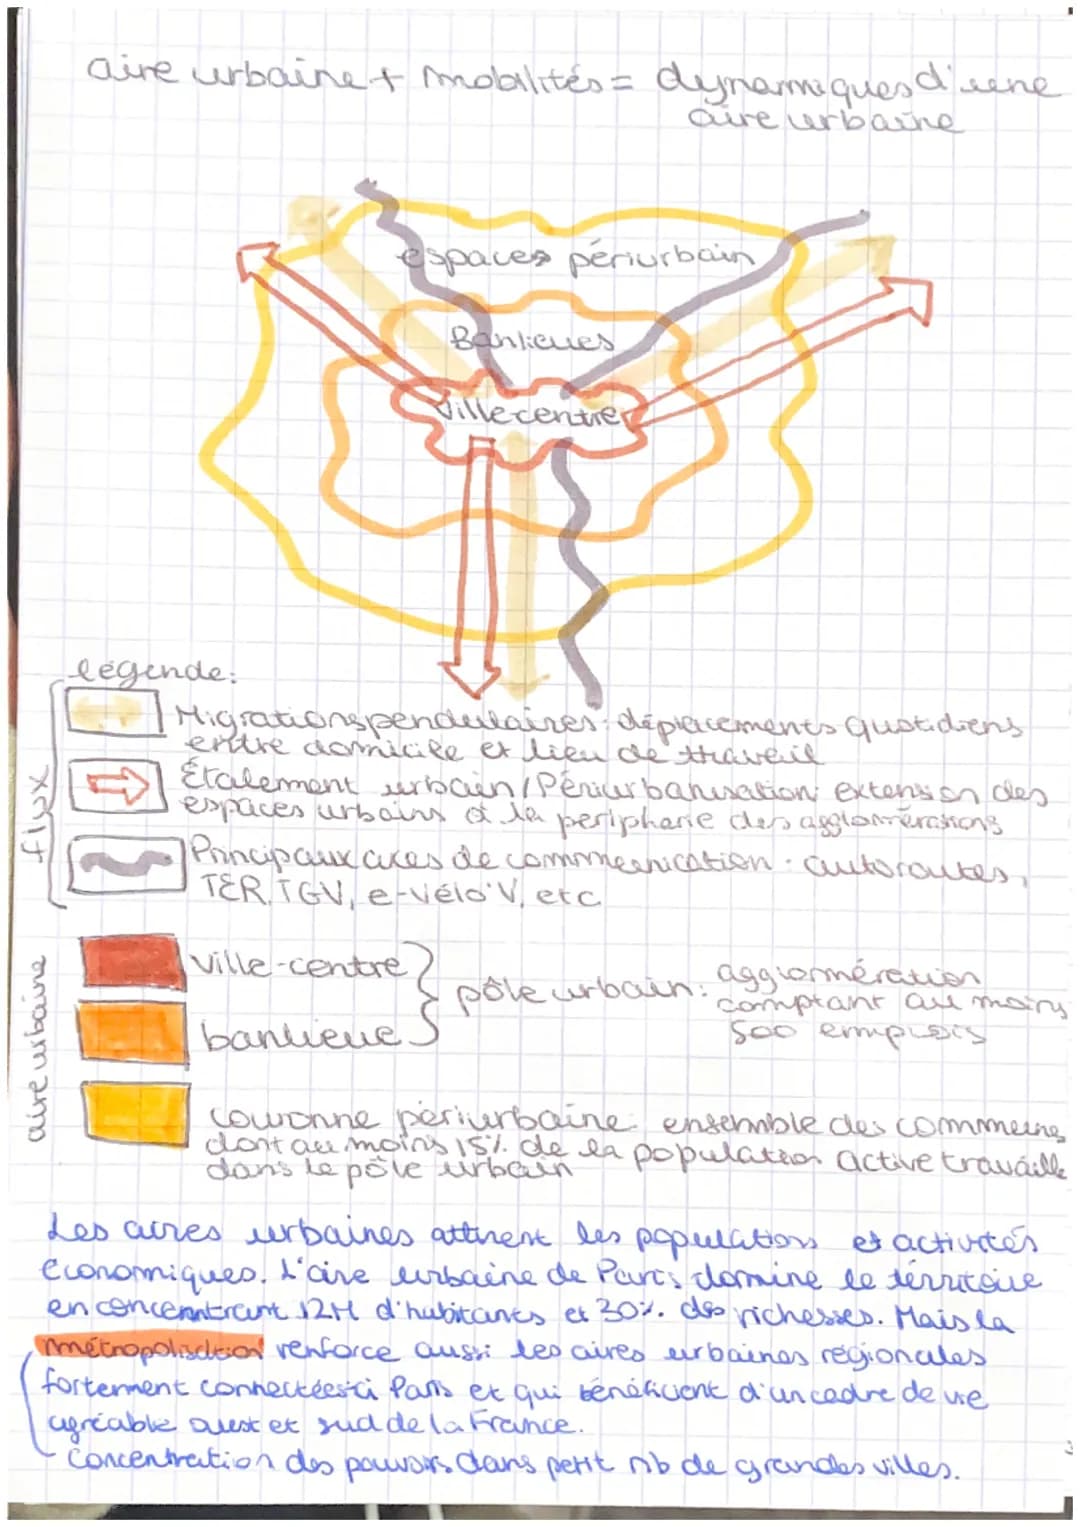 aire urbaine + mobilités = dynamiques d'une
aire urbaine
espaces périurbain
Banlieues
Ville centre
légende:
flux
Migrations pendulaires: déplacements quotidiens
entre domicile et lieu de travail
Étalement urbain/Périurbanisation: extension des
espaces urbains à la peripherie des agglomérations
Principaux axes de communication: autoroutes,
TER, TGV, e-vélo'V, etc
aire urbaine
ville-centre
banlieue
pôle urbain: agglomération
comptant au moins
500 emplois
couronne périurbaine: ensemble des communes
dont au moins 15% de la population active travaille
dans le pôle urbain
Les aires urbaines attirent les populations et activités
économiques. L'aire urbaine de Paris domine le térritoire
en concentrant 12M d'habitants et 30% des richesses. Mais la
métropolisation renforce aussi les aires urbaines régionales
fortement connectées à Paris et qui bénéficient d'un cadre de vie
agréable ouest et sud de la France.
Concentration des pouvoirs dans petit nb de grandes villes.